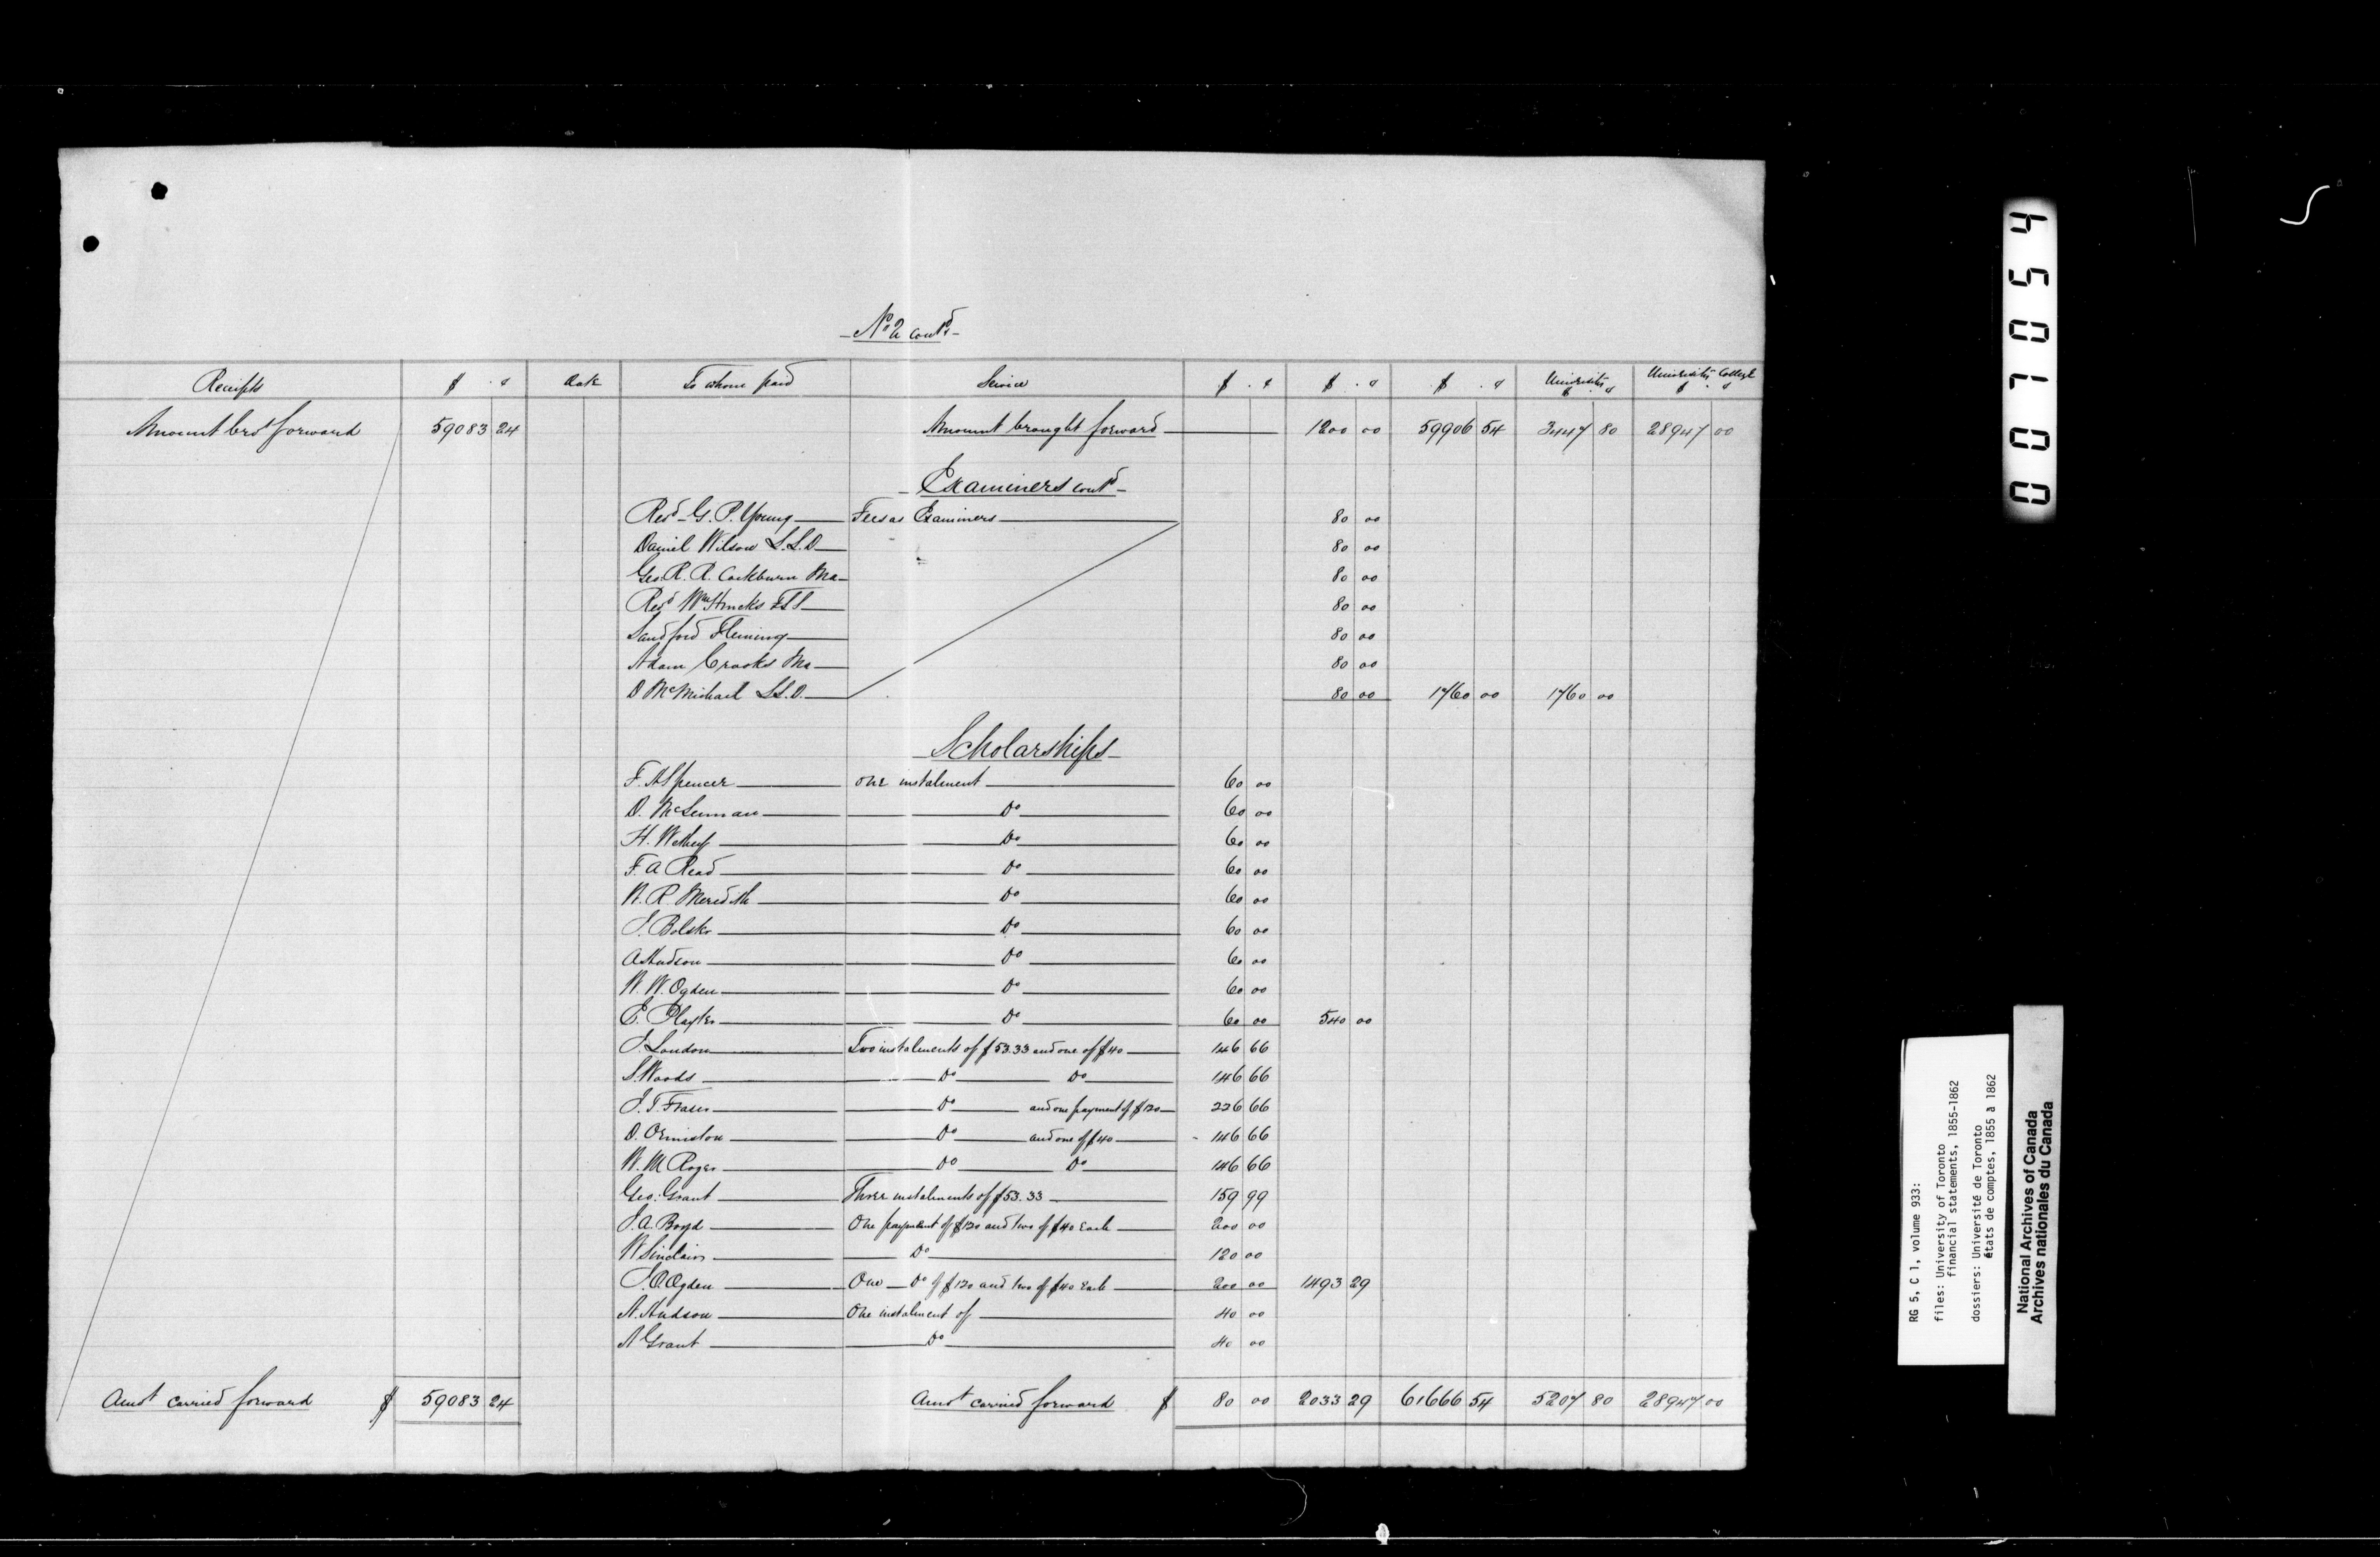 No 2 contd
Receipts $ . c Date To whom paid Service $ . c $ . c $ . c University $ . c University College $ . c
Amount brot forward 59083 24 Amount brought forward 1200 00 59906 54 3447 80 28947 00
Examiners contd
Revd G. P. Young Fees as Examiners 80 00
Daniel Wilson L.L.D 80 00
Geo. R. R. Cockburn Ma 80 00
Revd Wm Hincks FLS 80 00
Sandford Fleming 80 00
Adam Crooks Ma 80 00
D McMichael LL.D. 80 00 1760 00 1760 00
Scholarships
F. A Spencer one instalment 60 00
D. McLennan Do 60 00
H. Do 60 00
F. A Read Do 60 00
W. R Meredith Do 60 00
Do 60 00
A Hudson Do 60 00
W. W. Ogden Do 60 00
E. Playter Do 60 00 540 00
J. Loudon Two instalments of $53.33 and one of $40 146 66
S. Woods Do Do 146 66
J. T. Fraser Do and one payment of $120 226 66
D. Ormiston Do and one of $40 146 66
W. M Roger Do Do 146 66
Geo. Grant Three instalments of $53.33 159 99
J. A. Boyd One payment of $120 and two of $40 Each 200 00
W Sinclair Do 120 00
Ogden One Do of $120 and two of $40 Each 200 00 1493 29
A. Hudson One instalment of 40 00
A Grant Do 40 00
Amot carried forward $ 59083 24 Amot carried forward $ 80 00 2033 29 61666 54 5207 80 28947 00
001054
RG 5, C 1, volume 933:
files: University of Toronto
financial statements, 1855-1862
dossiers: Université de Toronto
états de comptes, 1855 à 1862
National Archives of Canada
Archives nationales du Canada